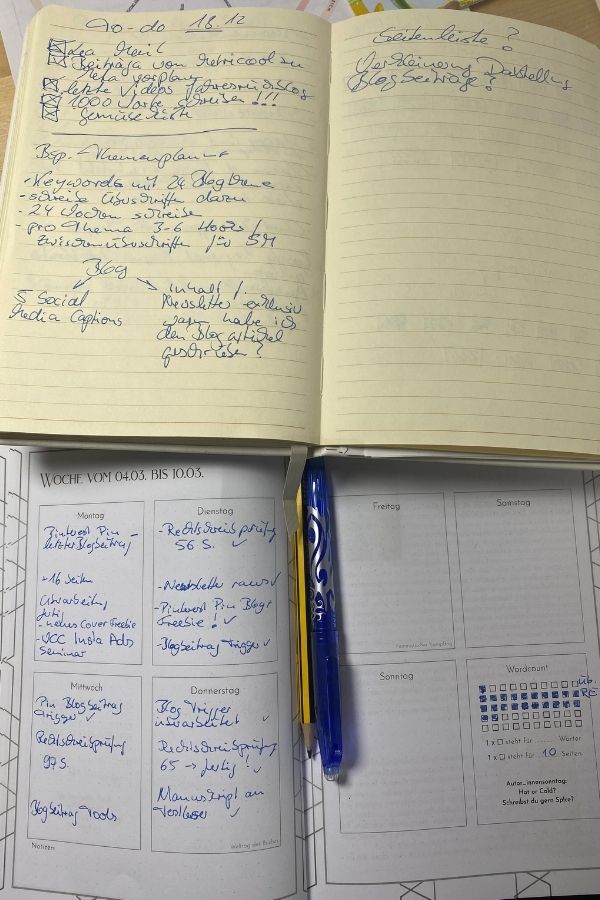 To-do 18.12
Lea Mail
Beiträge von Metricool zu
Meta vorplanen
letzte Videos Jahresrückblog
1000 Worte schreiben !!!
Gemüsekiste
Bsp. Themenplanung
- Keywords mit 24 Blogthemen
- schreibe Überschriften dazu
- 24 Wochen schreiben
- pro Thema 3-6 Hooks /
Zwischenüberschriften für SM
Blog
5 Social
Media Captions
Inhalt /
Newsletter exklusiv
warum habe ich
den Blogartikel
geschrieben?
Seitenleiste?
Verkleinerung Darstellung
Blogbeiträge?
WOCHE VOM 04.03. BIS 10.03.
Montag
Pinterest Pin -
letzter Blogbeitrag
- 16 Seiten
Überarbeitung
fertig
- neues Cover Freebie
Insta Ads
Seminar
Dienstag
- Rechtschreibprüfung
56 S. ✓
- Newsletter raus ✓
- Pinterest Pin Blog +
Freebie! ✓
- Blogbeitrag Trigger ✓
Mittwoch
Pin Blogbeitrag
Trigger ✓
Rechtschreibprüfung
97 S.
Blogbeitrag Tools
Notizen:
Donnerstag
Blog Trigger
überarbeitet ✓
Rechtschreibprüfung
65 → fertig! ✓
Manuskript an
Testleser ✓
Welttag des Buches
Freitag
Samstag
Sonntag
Wordcount
Üb.
RC
1 x □ steht für Wörter
1 x □ steht für 10 Seiten
Autor_innensonntag:
Hot or Cold?
Schreibst du gern Spice?